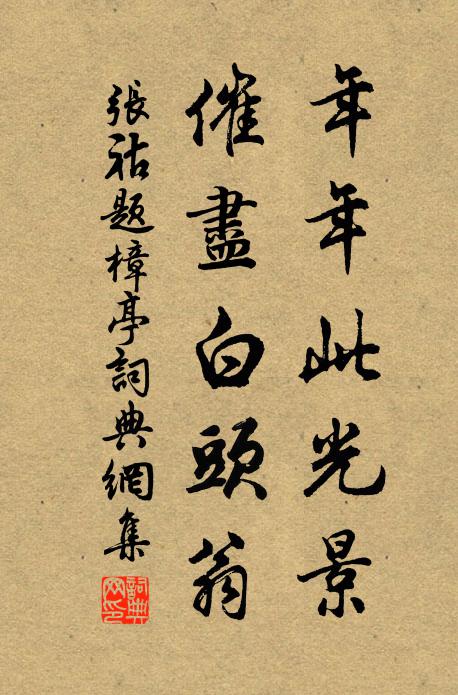 年年此光景
催盡白頭翁
張祜題樟亭詞典網集
詞典网印